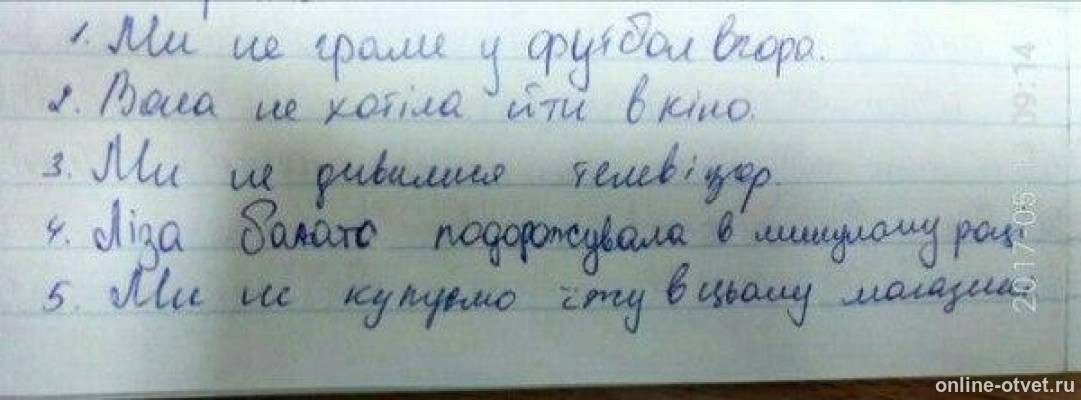 1. Ми не грали у футбол вчора.
2. Вона не хотіла йти в кіно.
3. Ми не дивилися телевізор.
4. Ліза багато подорожувала в минулому році
5. Ми не купуємо їжу в цьому магазині
2017-05 09:14
online-otvet.ru